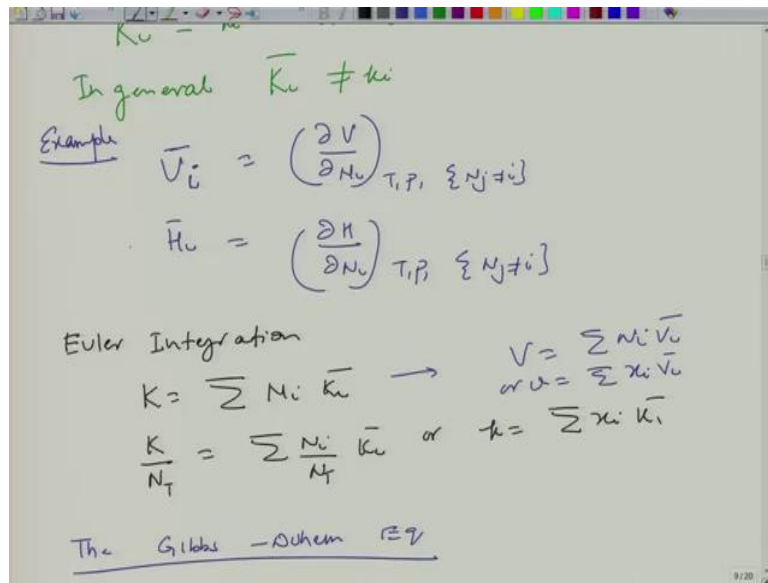 In general K̄i ≠ ki
Example V̄i = (∂V/∂Ni) T,P, {Nj≠i}
H̄i = (∂H/∂Ni) T,P, {Nj≠i}
Euler Integration
K = Σ Ni K̄i → V = Σ Ni V̄i
or v = Σ xi V̄i
K/NT = Σ Ni/NT K̄i or k = Σ xi K̄i
The Gibbs - Duhem Eq
9/20